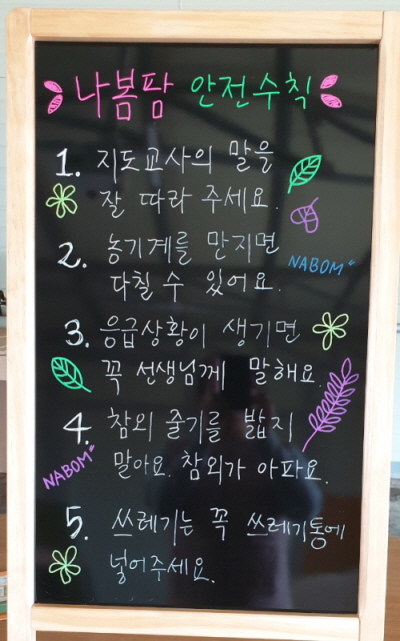 나봄팜 안전수칙
1. 지도교사의 말을
잘 따라 주세요.
2. 농기계를 만지면
다칠 수 있어요.
NABOM
3. 응급상황이 생기면
꼭 선생님께 말해요.
4. 참외 줄기를 밟지
말아요. 참외가 아파요.
NABOM
5. 쓰레기는 꼭 쓰레기통에
넣어주세요.